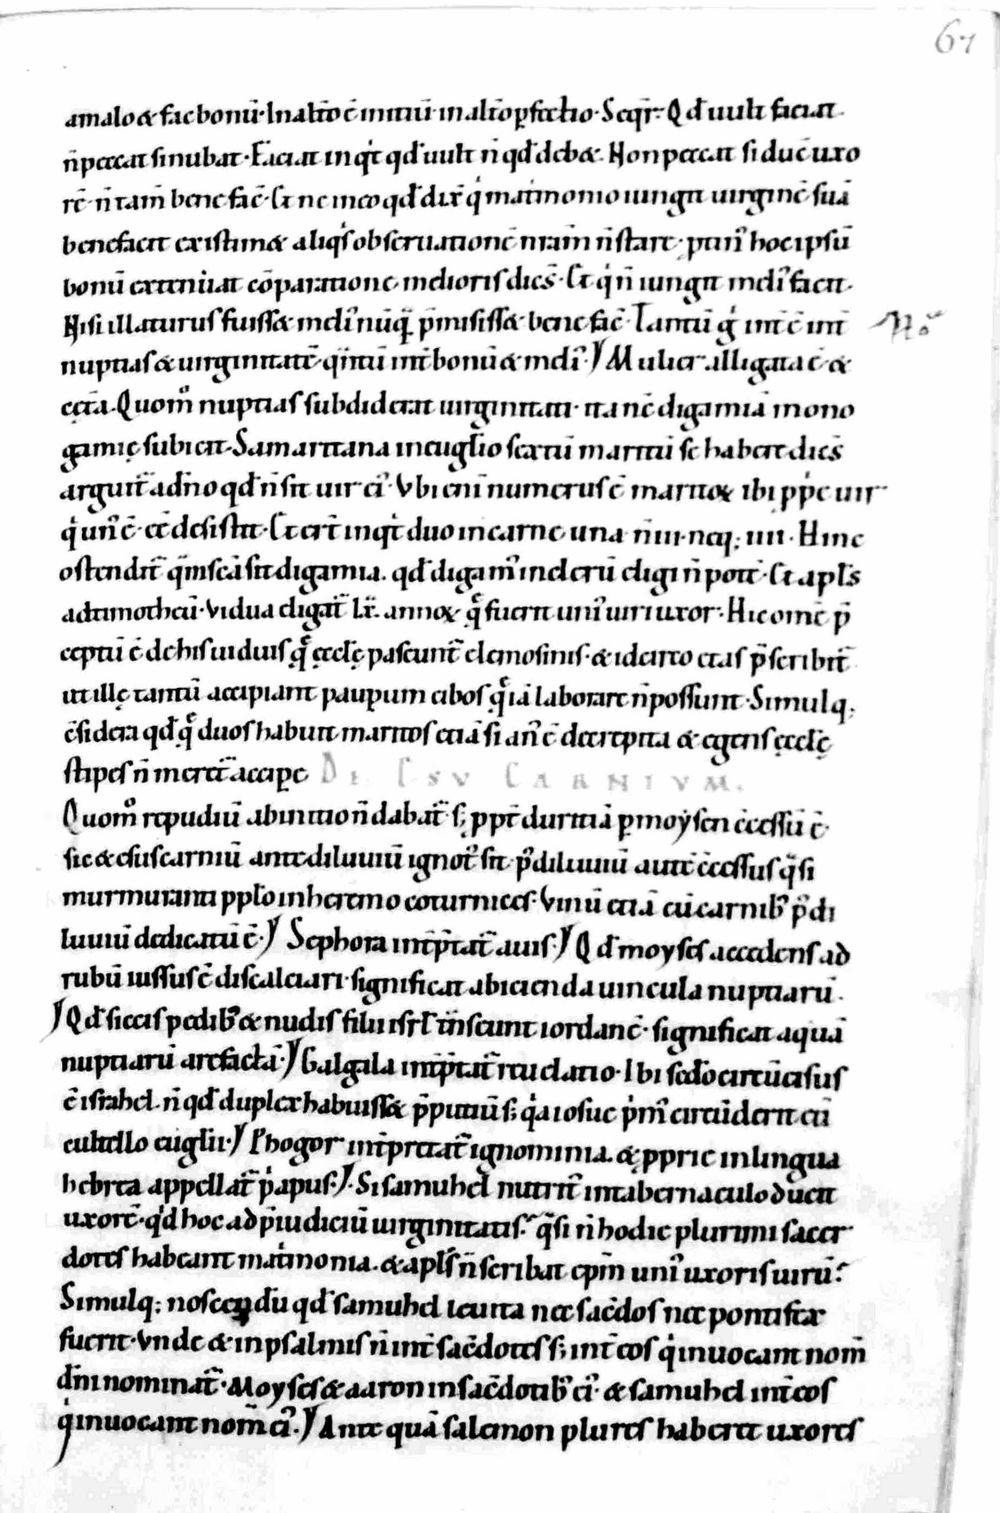 67
amalo & fac bonū· In altō ē initiū in altō ꝑfectio· Seqr̄· Qd̄ uult faciat
n̄ peccat si nubat· Faciat inqͥt qd̄ uult n̄ qd̄ deb&· Non peccat si duc̄ uxo
rē· n̄ tam̄ bene fac̄· Et ne in eo qd̄ dix̄ qͥ matͥmonio iungit uirginē suā
bene facit existim& aliqͥs obseruationē nr̄am n̄ stare· ptin' hoc ipsū
bonū extenuat cōparatione melioris dicēs· Et qͥ n̄ iungit meli' facit·
Nisi illaturus fuiss& meli' nūq̄ p̄misiss& bene fac̄· Tantū gͥ int̄ ē int̄
nuptias & uirginitatē· qͣntū int̄ bonū & meli'· Mulier alligata ē &
cet̄a· Quom̊ nuptias subdiderat uirginitati· ita nc̄ digamiā mono
gamię subicit· Samaritana in euglīo sextū maritū se habere dicēs
arguit̄ a dn̄o qd̄ n̄ sit uir ei'· Vbi eni numerus ē maritoꝝ ibi ppͥe uir
qͥ un' ē· ēē desistit· Et er̄t inqͥt duo in carne una· n̄ iii· neq; iiii· Hinc
ostendit̄ qͣm scā sit digamia· qd̄ digam' in clerū eligi n̄ pot̄· Et apl's
ad timotheū· Vidua eligat̄ lx̄· annoꝝ qͣ fuerit uni' uiri uxor· Hic om̄e p̄
ceptū ē de his uiduis qͣ ęcclę pascunt̄ elemosinis· & idcirco etas p̄scribit̄
ut illę tantū accipiant pauperum cibos qͣ iā laborare n̄ possunt· Simulq;
c̄sidera qd̄ qͣ duos habuit maritos etiā si an' ē decrepita & egens ęcclę
stipes n̄ meret̄ accipe DE ESV CARNIVM.
Quom̊ repudiū ab initio n̄ dabat̄· s; ppt̄ duritiā ꝑ moysen c̄cessū ē·
sic & esus carniū ante diluuiū ignot' sit· p' diluuiū aut̄ c̄cessus qͣsi
murmuranti pplō in heremo coturnices· Vinū etiā cū carnib; p' di
luuiū dedicatū ē· Sephora int̄p̄tat̄ auis· Qd̄ moyses accedens ad
rubū iussus ē discalciari· significat abicienda uincula nuptiarū·
Qd̄ siccis pedib; & nudis filii isrl̄ tn̄seunt iordanē· significat aquā
nuptiarū arefactā· Galgala int̄p̄tat̄ reuelatio· Ibi scd̄o circūcisus
ē israhel· n̄ qd̄ duplex habuiss& p̄putiū s; qͥa iosue pͥm' circūciderit eū
cultello euglīi· Phogor int̄pretat̄ ignominia· & pprie in lingua
hebrea appellat̄ pͥapus· Si samuhel nutrit' in tabernaculo ducit
uxorē· qͥd hoc ad p̄iudiciū uirginitatis? qͣsi n̄ hodie plurimi sacer
dotes habeant matͥmonia· & apl's n̄ scribat epm̄ uni' uxoris uirū?
Simulq; noscendū qd̄ samuhel leuita nec sac̄dos nec pontifex
fuerit· Vnde & in psalmis n̄ int̄ sac̄dotes s; int̄ eos qͥ inuocant nom̄
dn̄i nominat̄· Moyses & aaron in sac̄dotib; ei' & samuhel int̄ eos
qͥ inuocant nom̄ ei'· Ante quā salemon plures haberet uxores